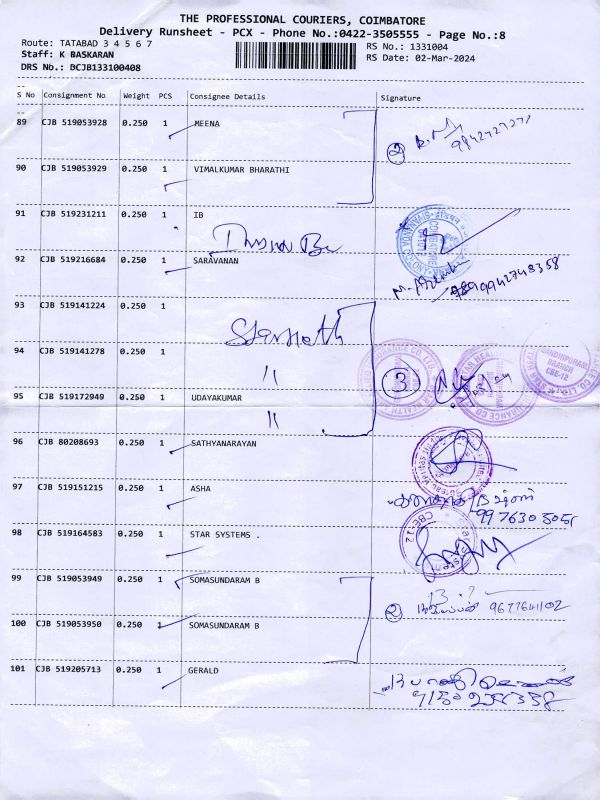 THE PROFESSIONAL COURIERS, COIMBATORE
Delivery Runsheet - PCX - Phone No.:0422-3505555 - Page No.:8
Route: TATABAD 3 4 5 6 7
RS No.: 1331004
Staff: K BASKARAN
RS Date: 02-Mar-2024
DRS No.: BCJB133100408
S No Consignment No Weight PCS Consignee Details Signature
89 CJB 519053928 0.250 1 MEENA
2
9842727271
90 CJB 519053929 0.250 1 VIMALKUMAR BHARATHI
91 CJB 519231211 0.250 1 IB
92 CJB 519216684 0.250 1 SARAVANAN
9942748358
93 CJB 519141224 0.250 1
94 CJB 519141278 0.250 1
"
3
GANDHIPURAM
BRANCH
CBE-12
95 CJB 519172949 0.250 1 UDAYAKUMAR
"
96 CJB 80208693 0.250 1 SATHYANARAYAN
97 CJB 519151215 0.250 1 ASHA
98 CJB 519164583 0.250 1 STAR SYSTEMS .
CBE-12
99 CJB 519053949 0.250 1 SOMASUNDARAM B
2
9677641102
100 CJB 519053950 0.250 1 SOMASUNDARAM B
101 CJB 519205713 0.250 1 GERALD